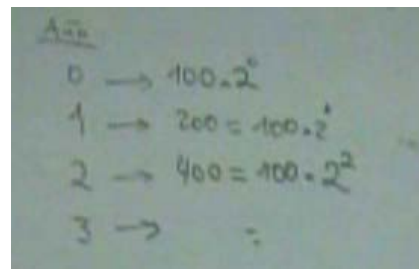 Año
0 → 100.2⁰
1 → 200 = 100.2¹
2 → 400 = 100.2²
3 → =